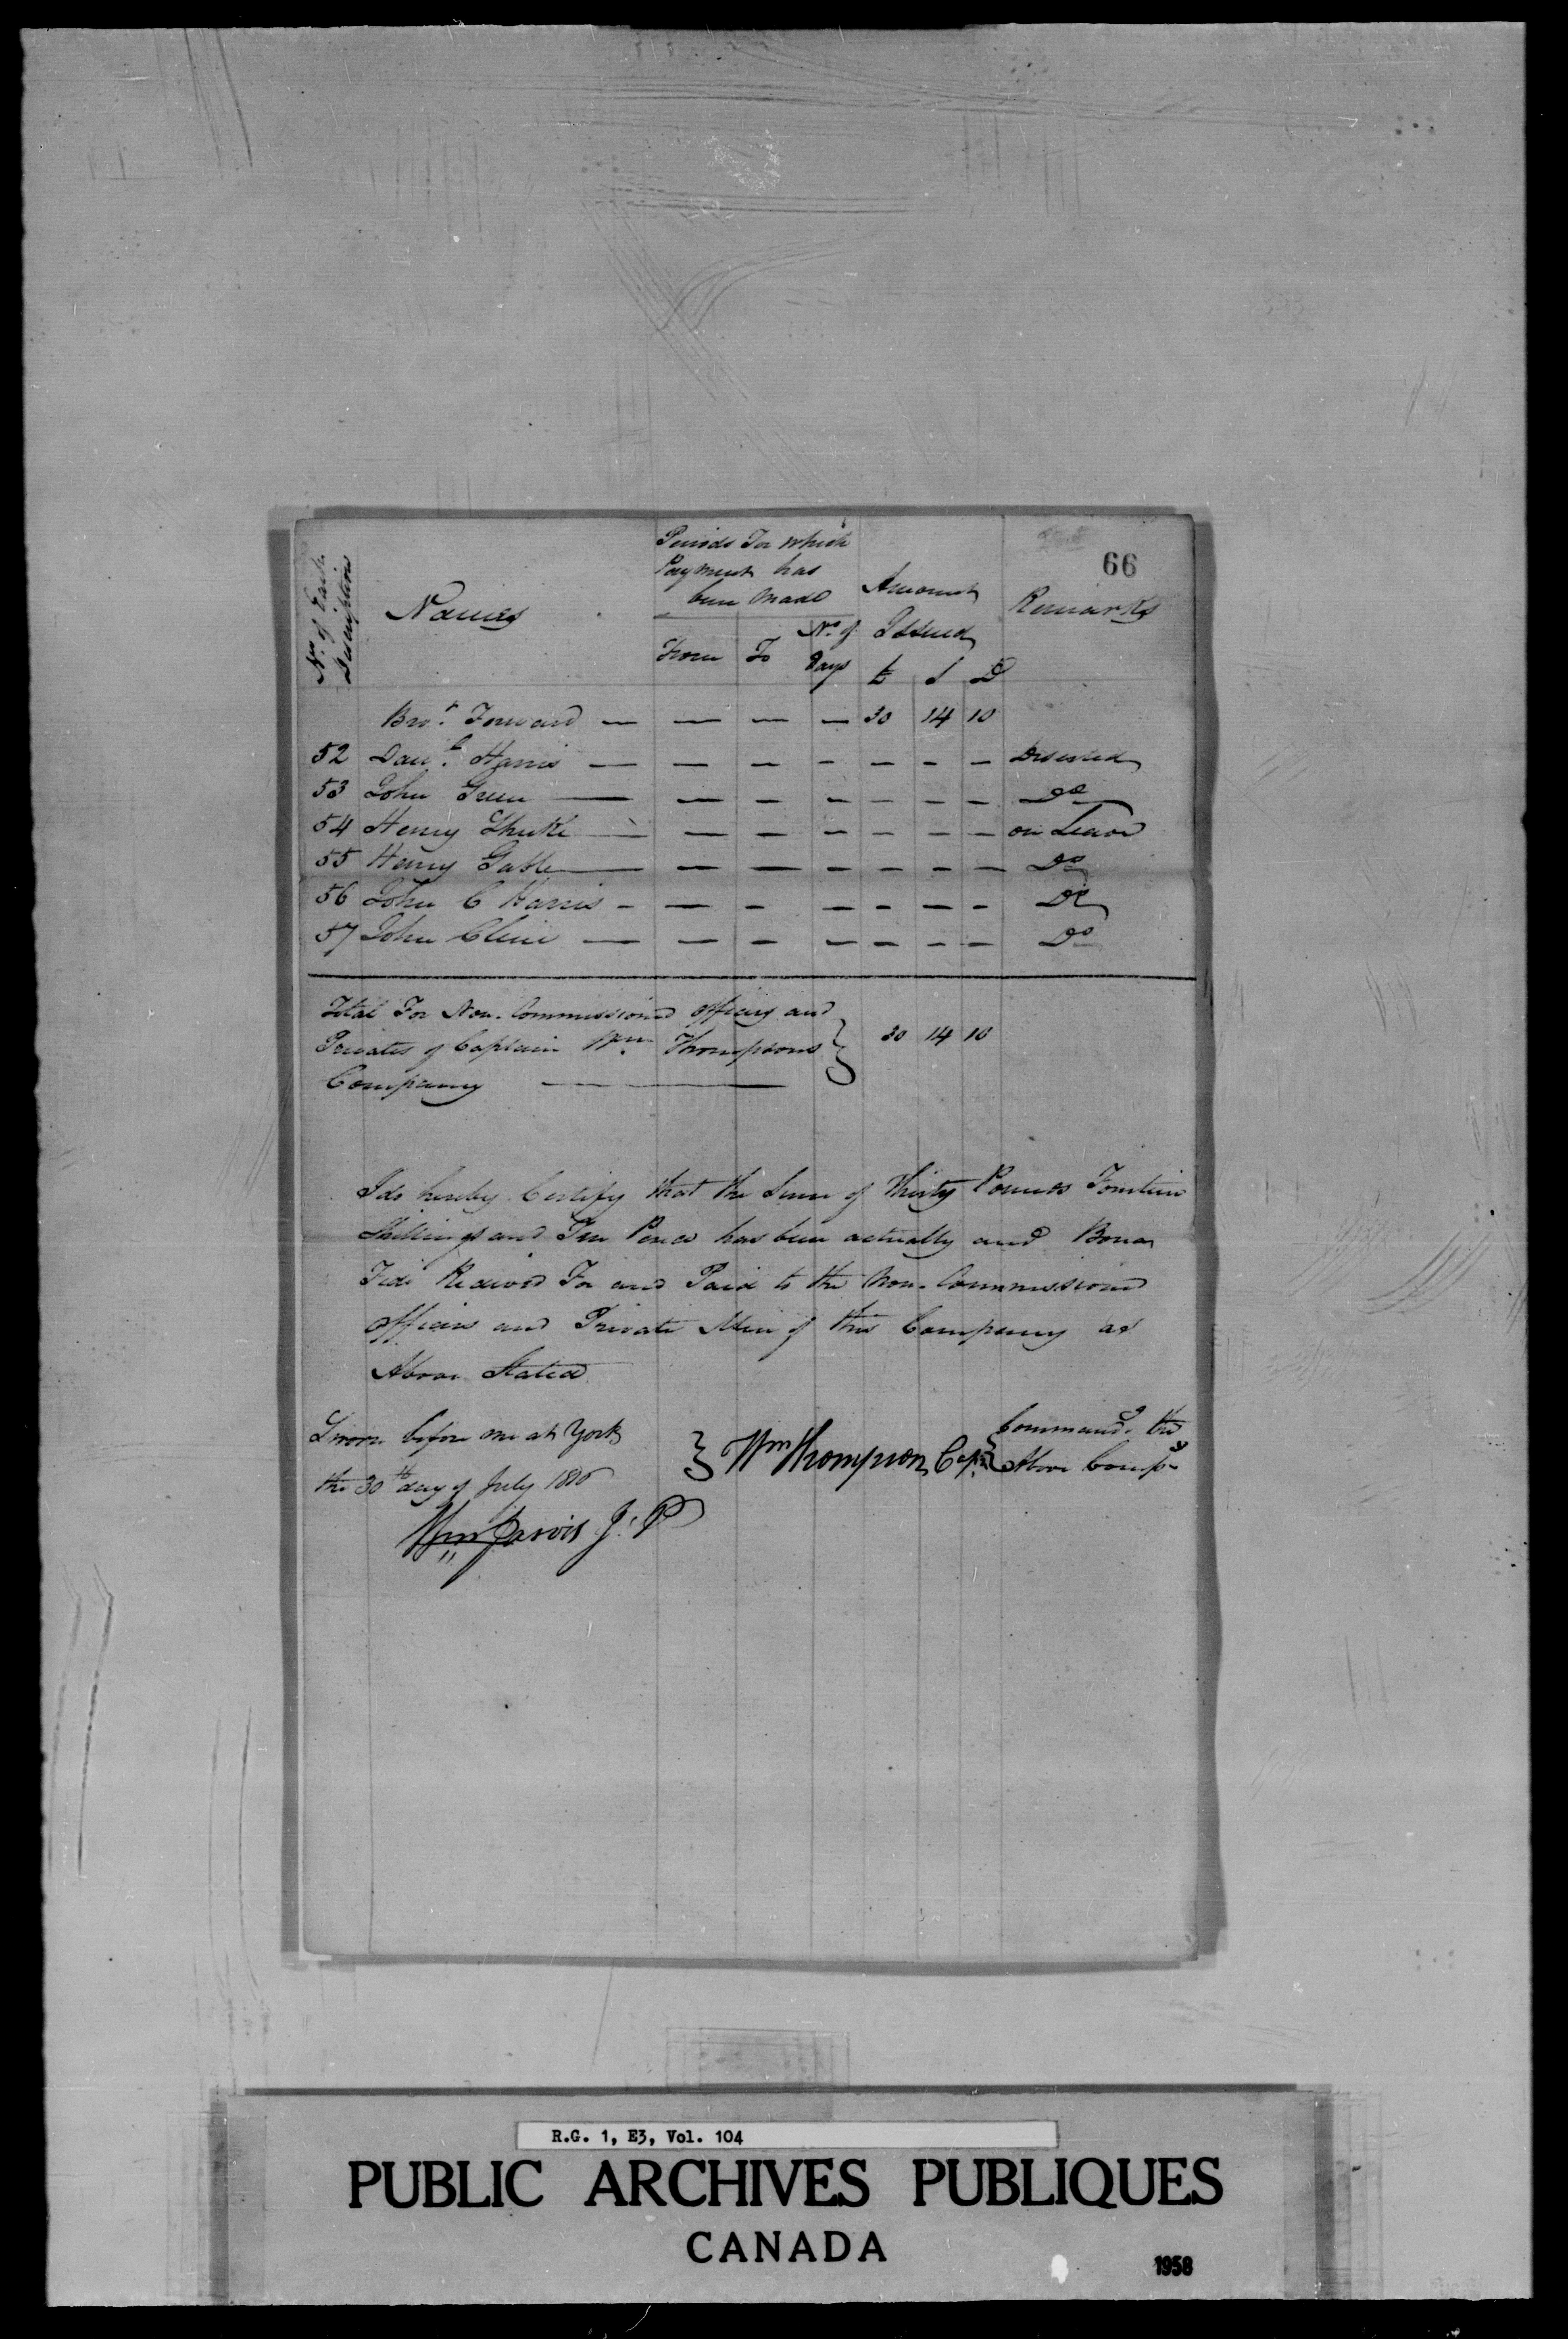 66
Nos. of Each Descriptions
Names
Periods For which
Payment has
been Made
From To No. of Days
Amount
Issued
£ S D
Remarks
Bro.t Forward — — — — 30 14 10
52 Dan.l Harris — — — — — — — Deserted
53 John Green — — — — — — — Do
54 Henry — — — — — — — on Leave
55 Henry Gable — — — — — — — Do
56 John C Harris — — — — — — — Do
57 John Cline — — — — — — — Do
Total For Non-Commissioned officers and
Privates of Captain Wm. Thompsons } 30 14 10
Company —
I do hereby Certify that the Sum of Thirty Pounds Fourteen
Shillings and Ten Pence has been actually and Bona
Fide Received For and Paid to the Non-Commissioned
officers and Private Men of this Company as
Above Stated
Sworn before me at York
the 30th day of July
} Wm Thompson Capt. { Command.g the
Above Comp.y
Wm Jarvis J.P
R.G. 1, E3, Vol. 104
PUBLIC ARCHIVES PUBLIQUES
CANADA
1958